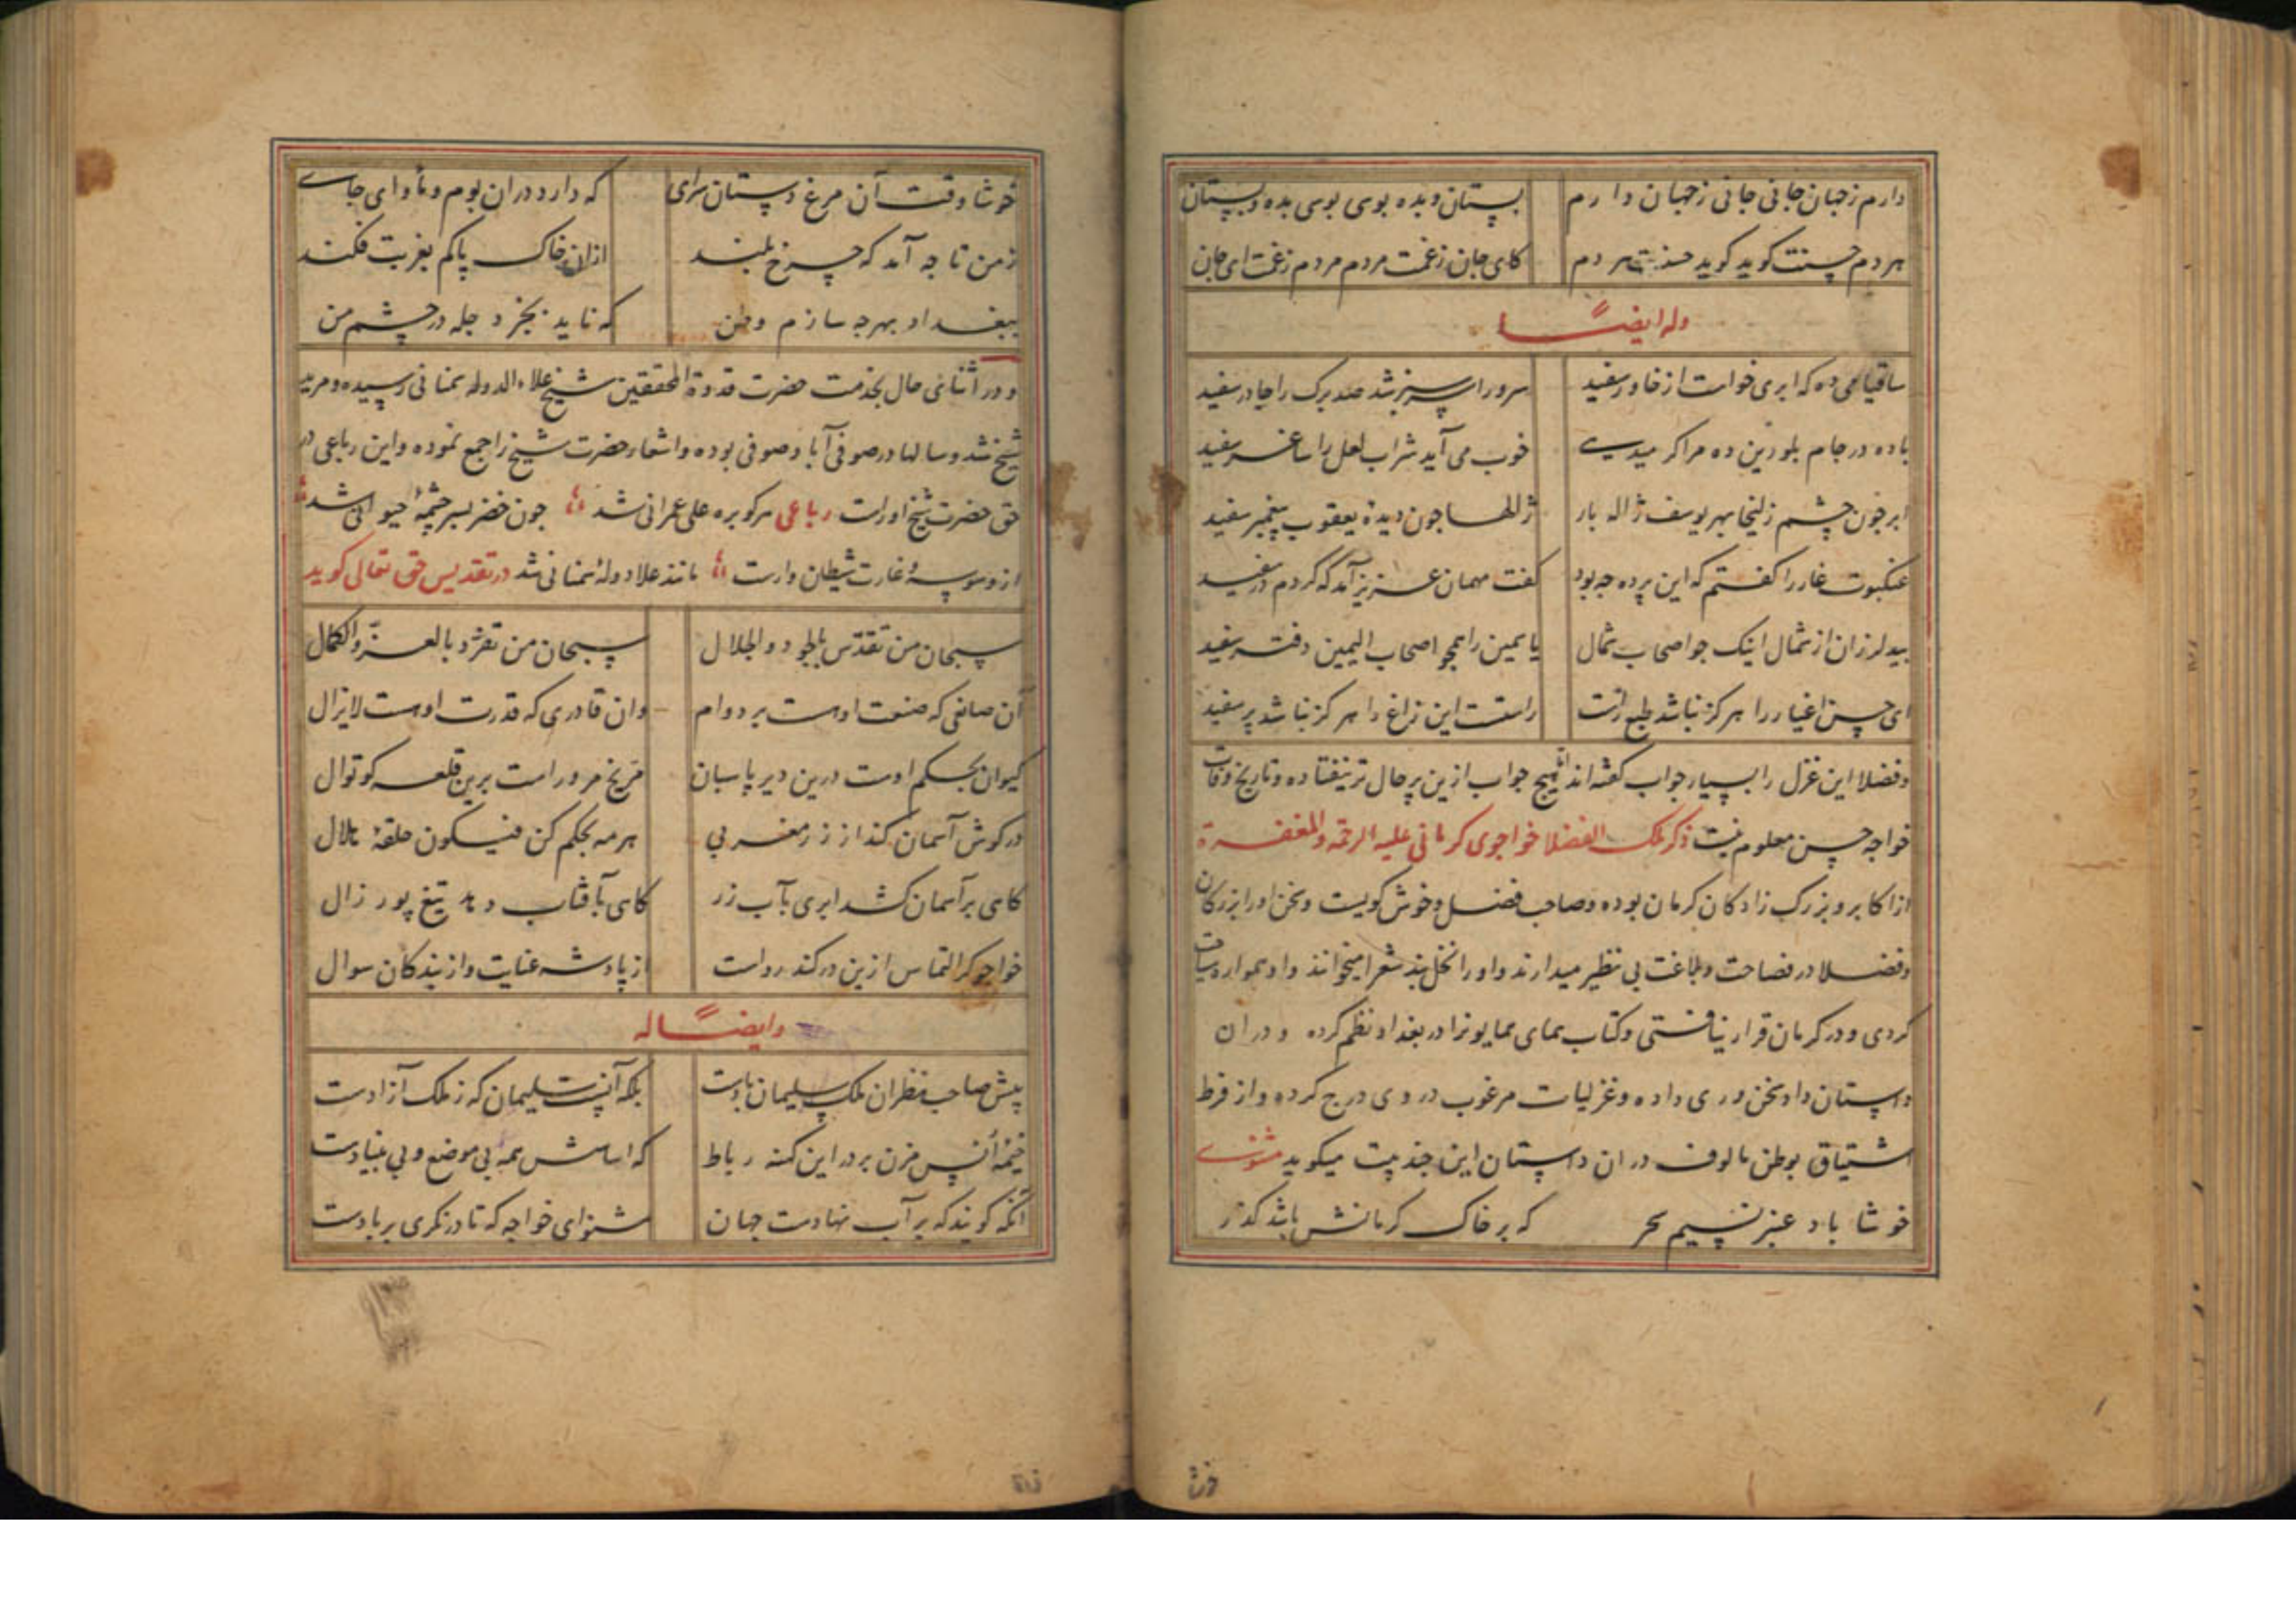 دارم ز جهان جانی جانی ز جهان دارم بستان و بده بوسی بوسی بده و بستان
هر دم حسنت گوید گوید حسنت هر دم کای جان ز غمت مردم مردم ز غمت ای جان
وله ایضاً
ساقیا می ده که ابری خواست از خاور سفید سرو را سرسبز شد صد برک را چادر سفید
باده در جام بلورین ده مرا کر میدهی خوب می آید شراب لعل را ساغر سفید
ابر چون چشم زلیخا بهر یوسف ژاله بار ژالها چون دیدۀ یعقوب پیغمبر سفید
عنکبوت غار را کفتم که این پرده چه بود کفت مهمان عزیز آمد که کردم در سفید
بید لرزان از شمال اینک جو اصحاب شمال یا یمین را همجو اصحاب الیمین دفتر سفید
ای حسن اغیار را هرکز نباشد طبع راست راستست این زاغ را هرکز نباشد پر سفید
وفضلا این غزل را بسیار جواب کفته اند اما هیج جواب ازین پرحال تر نیفتاده و تاریخ وفات
خواجه حسن معلوم نیست ذکر ملک الفضلا خواجوی کرمانی علیه الرحمة والمغفرة
از اکابر و بزرک زادکان کرمان بوده و صاحب فضل و خوش کویست و سخن او را بزرکان
و فضلا در فصاحت و بلاغت بی نظیر میدارند و او را نخل بند شعرا میخوانند و او همواره سیاحت
کردی و در کرمان قرار نیافتی و کتاب همای همایونرا در بغداد نظم کرده و در ان
داستان داد سخن وری داده و غزلیات مرغوب در وی درج کرده و از فرط
اشتیاق بوطن مالوف در ان داستان این چند بیت میکوید مثنوی
خوشا باد عنبر نسیم سحر که بر خاک کرمانش باشد کذر
خوشا وقت آن مرغ دستان سرای که دارد در ان بوم و ماوای جای
ز من تا جه آمد که چرخ بلند ازان خاک پاکم بغربت فکند
ببغداد بهر جه سازم وطن که ناید بجز دجله در چشم من
و در اثنای حال بخدمت حضرت قدوة المحققین شیخ علاء الدوله سمنانی رسیده و مرید
شیخ شد و سالها در صوفی آباد صوفی بوده و اشعار حضرت شیخ را جمع نموده و این رباعی در
حق حضرت شیخ اوراست رباعی هر کو بره علی عمرانی شد جون خضر بسر چشمۀ حیوانی شد
از وسوسه و غارت شیطان وارست مانند علا دولۀ سمنانی شد در تقدیس حق تعالی کوید
سبحان من تقدس بالجود والجلال سبحان من تفرد بالعز والکمال
آن صانعی که صنعت اوست بر دوام وان قادری که قدرت اوست لایزال
کیوان بحکم اوست درین دیر پاسبان مریخ مرو راست برین قلعه کوتوال
در کوش آسمان کند از زر مغربی هر مه بحکم کن فیکون حلقۀ هلال
کاهی بر آسمان کشد ابری بآب زر کاهی بآفتاب دهد تیغ پور زال
خواجو کر التماس ازین در کند رواست از پادشه عنایت و از بندکان سوال
وایضاً له
پیش صاحب نظران ملک سلیمان بادست بلکه آنست سلیمان که ز ملک آزادست
خیمۀ انس مزن بر در این کهنه رباط که اساسش همه بی موضع و بی بنیادست
آنکه کویند که بر آب نهادست جهان مشنو ای خواجه که تا در نکری بر بادست